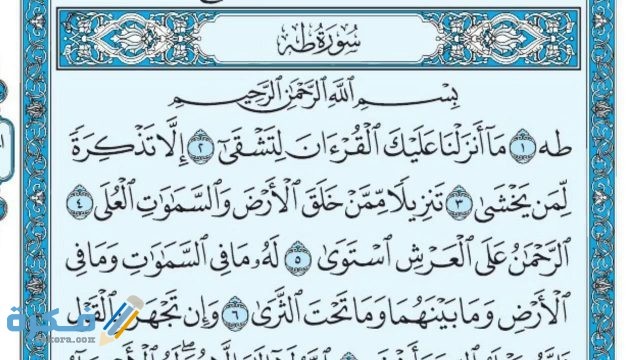 سُورَةُ طه
بِسْمِ ٱللَّهِ ٱلرَّحْمَٰنِ ٱلرَّحِيمِ
طه ١ مَآ أَنزَلْنَا عَلَيْكَ ٱلْقُرْءَانَ لِتَشْقَىٰٓ ٢ إِلَّا تَذْكِرَةً
لِّمَن يَخْشَىٰ ٣ تَنزِيلًا مِّمَّنْ خَلَقَ ٱلْأَرْضَ وَٱلسَّمَٰوَٰتِ ٱلْعُلَى ٤
ٱلرَّحْمَٰنُ عَلَى ٱلْعَرْشِ ٱسْتَوَىٰ ٥ لَهُۥ مَا فِى ٱلسَّمَٰوَٰتِ وَمَا فِى
ٱلْأَرْضِ وَمَا بَيْنَهُمَا وَمَا تَحْتَ ٱلثَّرَىٰ ٦ وَإِن تَجْهَرْ بِٱلْقَوْلِ
فكرة